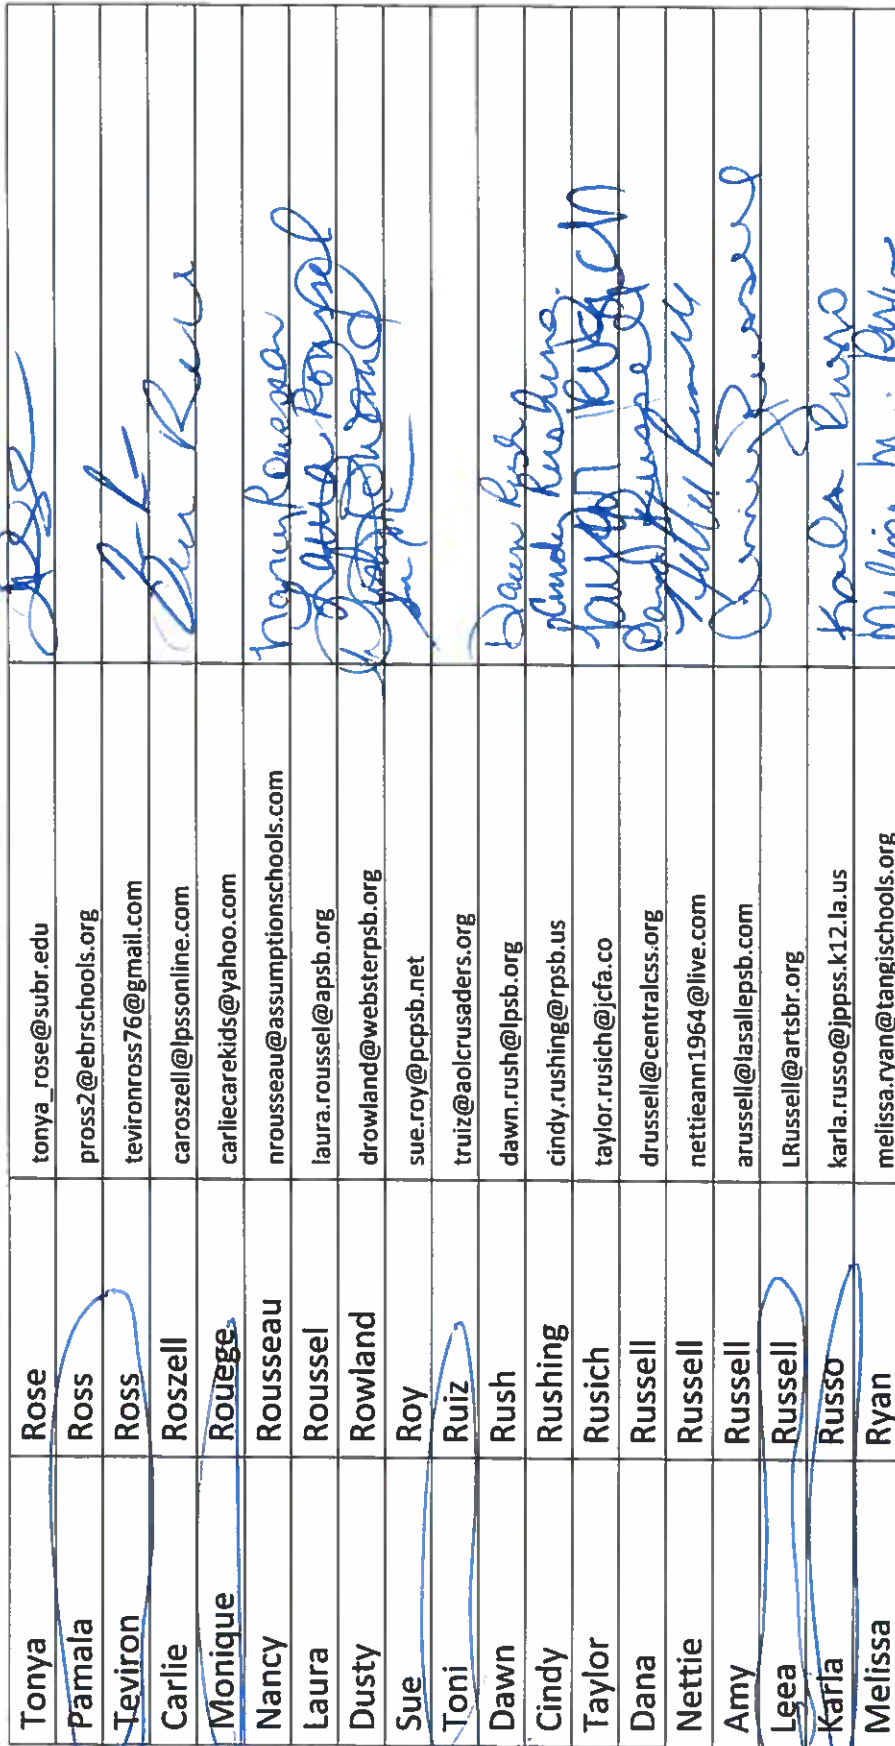 Tonya Rose tonya_rose@subr.edu
Pamala Ross pross2@ebrschools.org
Teviron Ross tevironross76@gmail.com
Carlie Roszell caroszell@lpssonline.com
Monique Rouege carliecarekids@yahoo.com
Nancy Rousseau nrousseau@assumptionschools.com Nancy Rousseau
Laura Roussel laura.roussel@apsb.org Laura Roussel
Dusty Rowland drowland@websterpsb.org Dusty Rowland
Sue Roy sue.roy@pcpsb.net
Toni Ruiz truiz@aolcrusaders.org
Dawn Rush dawn.rush@lpsb.org Dawn Rush
Cindy Rushing cindy.rushing@rpsb.us Cindy Rushing
Taylor Rusich taylor.rusich@jcfa.co Taylor Rusich
Dana Russell drussell@centralcss.org Dana Russell
Nettie Russell nettieann1964@live.com Nettie Russell
Amy Russell arussell@lasallepsb.com Russell
Leea Russell LRussell@artsbr.org
Karla Russo karla.russo@jppss.k12.la.us Karla Russo
Melissa Ryan melissa.ryan@tangischools.org Melissa